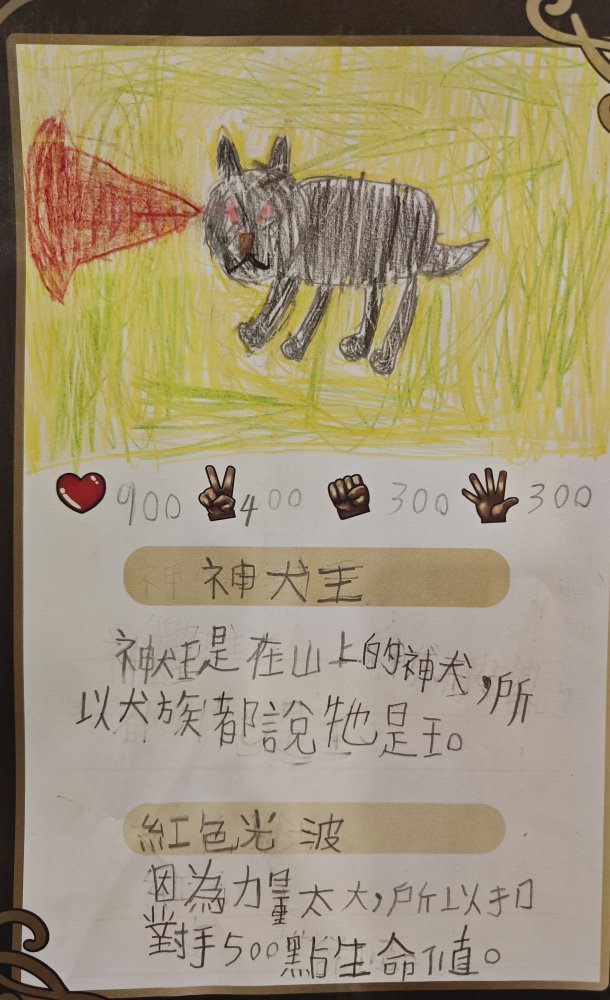 900 400 300 300
神犬王
神犬王是在山上的神犬，所
以犬族都說牠是王。
紅色光波
因為力量太大，所以扣
對手500點生命值。